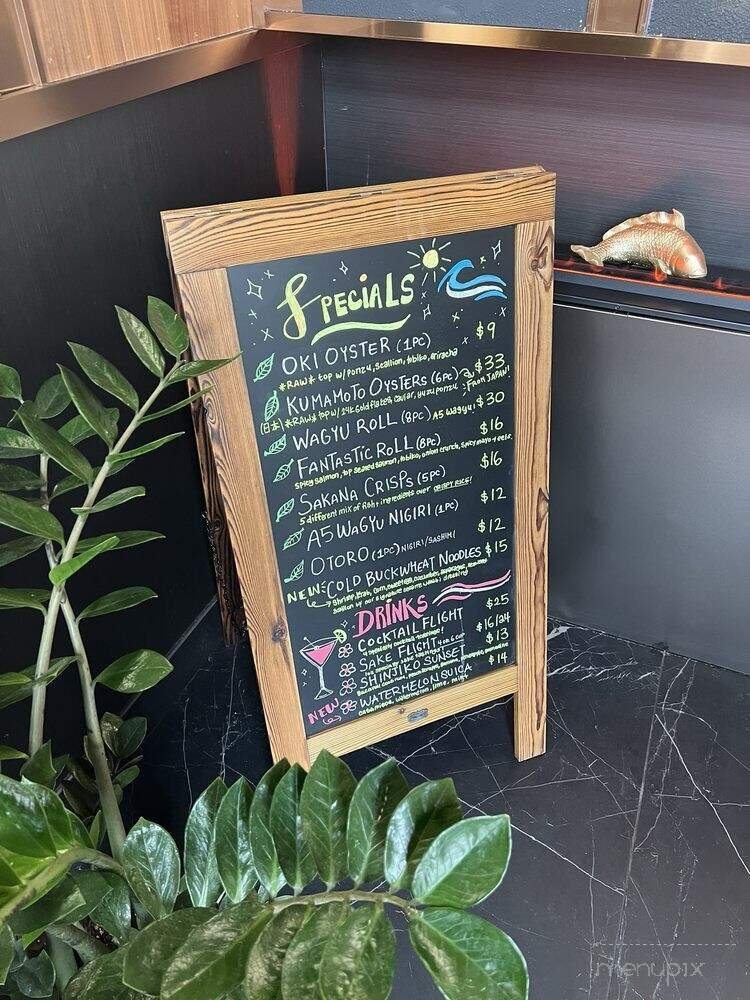 SPECIALS
OKI OYSTER (1PC) $9
*RAW* top w/ ponzu, scallion, tobiko, sriracha
KUMAMOTO OYSTERS (6PC) $33
(日本) *RAW* top w/ 24k Gold flakes, Caviar, yuzu ponzu FROM JAPAN!
WAGYU ROLL (8PC) A5 Wagyu! $30
FANTASTIC ROLL (8PC) $16
Spicy salmon, top seared salmon, tobiko, onion crunch, spicy mayo + eel s.
SAKANA CRISPS (5PC) $16
5 different mix of fish + ingredients over CRISPY RICE!
A5 WAGYU NIGIRI (1PC) $12
OTORO (1PC) NIGIRI/SASHIMI $12
NEW COLD BUCKWHEAT NOODLES $15
Shrimp, Krab, Corn, cucumber,
scallion w/ dressing
DRINKS
COCKTAIL FLIGHT $25
SAKE FLIGHT 4 or 6 cup $16/24
SHINJIKO SUNSET $13
NEW WATERMELON QUICA $14
watermelon, lime, mint
menupix